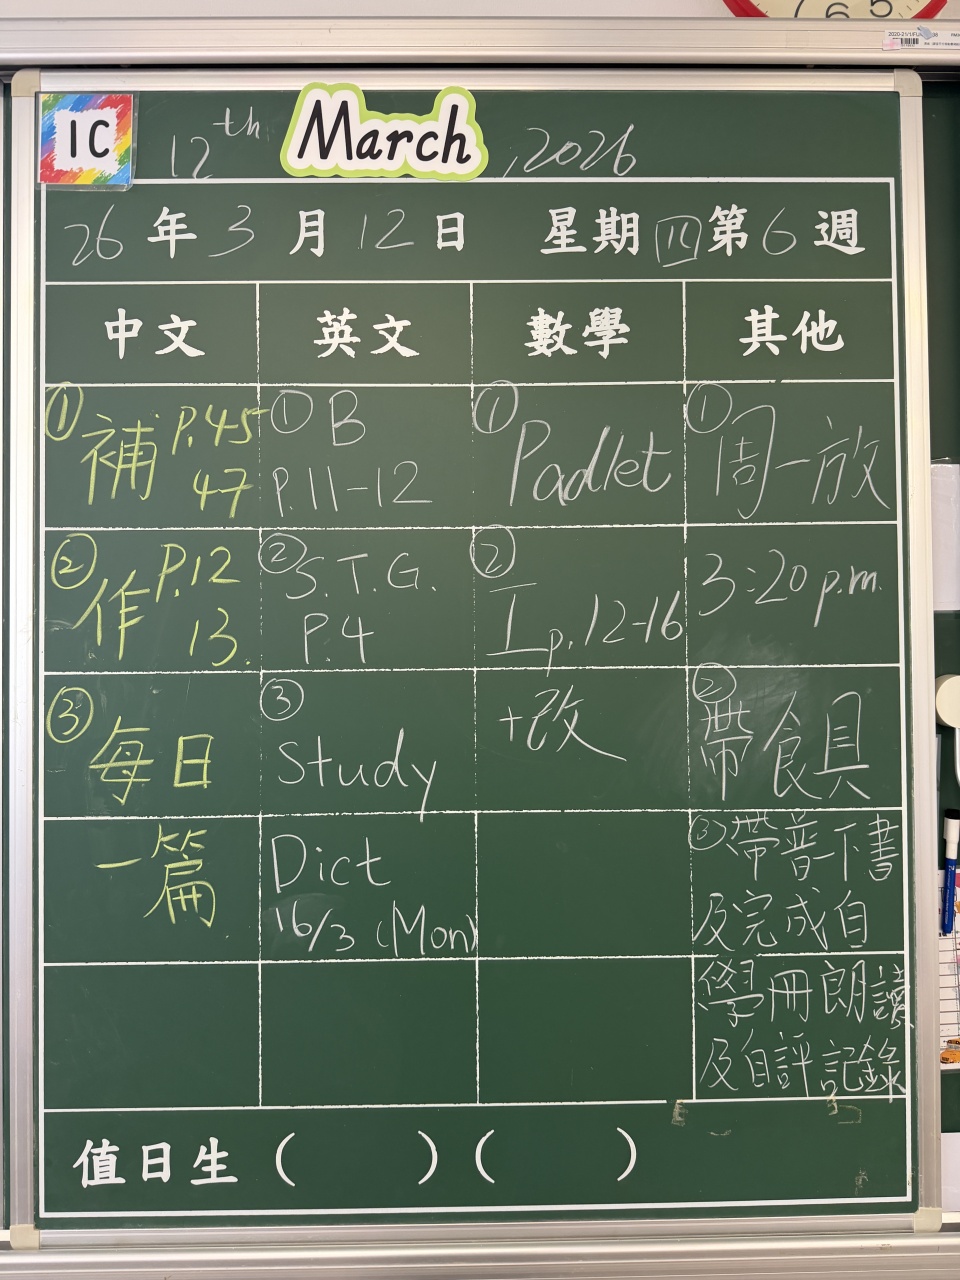 1C
12th March, 2026
26年3月12日 星期四 第6週
中文 英文 數學 其他
① 補 P.45
47
② 作 P.12
13.
③ 每日
一篇
① B
P.11-12
② S.T.G.
P.4
③
Study
Dict
16/3 (Mon)
① Padlet
②
I p.12-16
+改
① 周一放
3:20 p.m.
② 帶食具
③ 帶普一下書
及完成自
學冊朗讀
及自評記錄
值日生 ( ) ( )
6 5